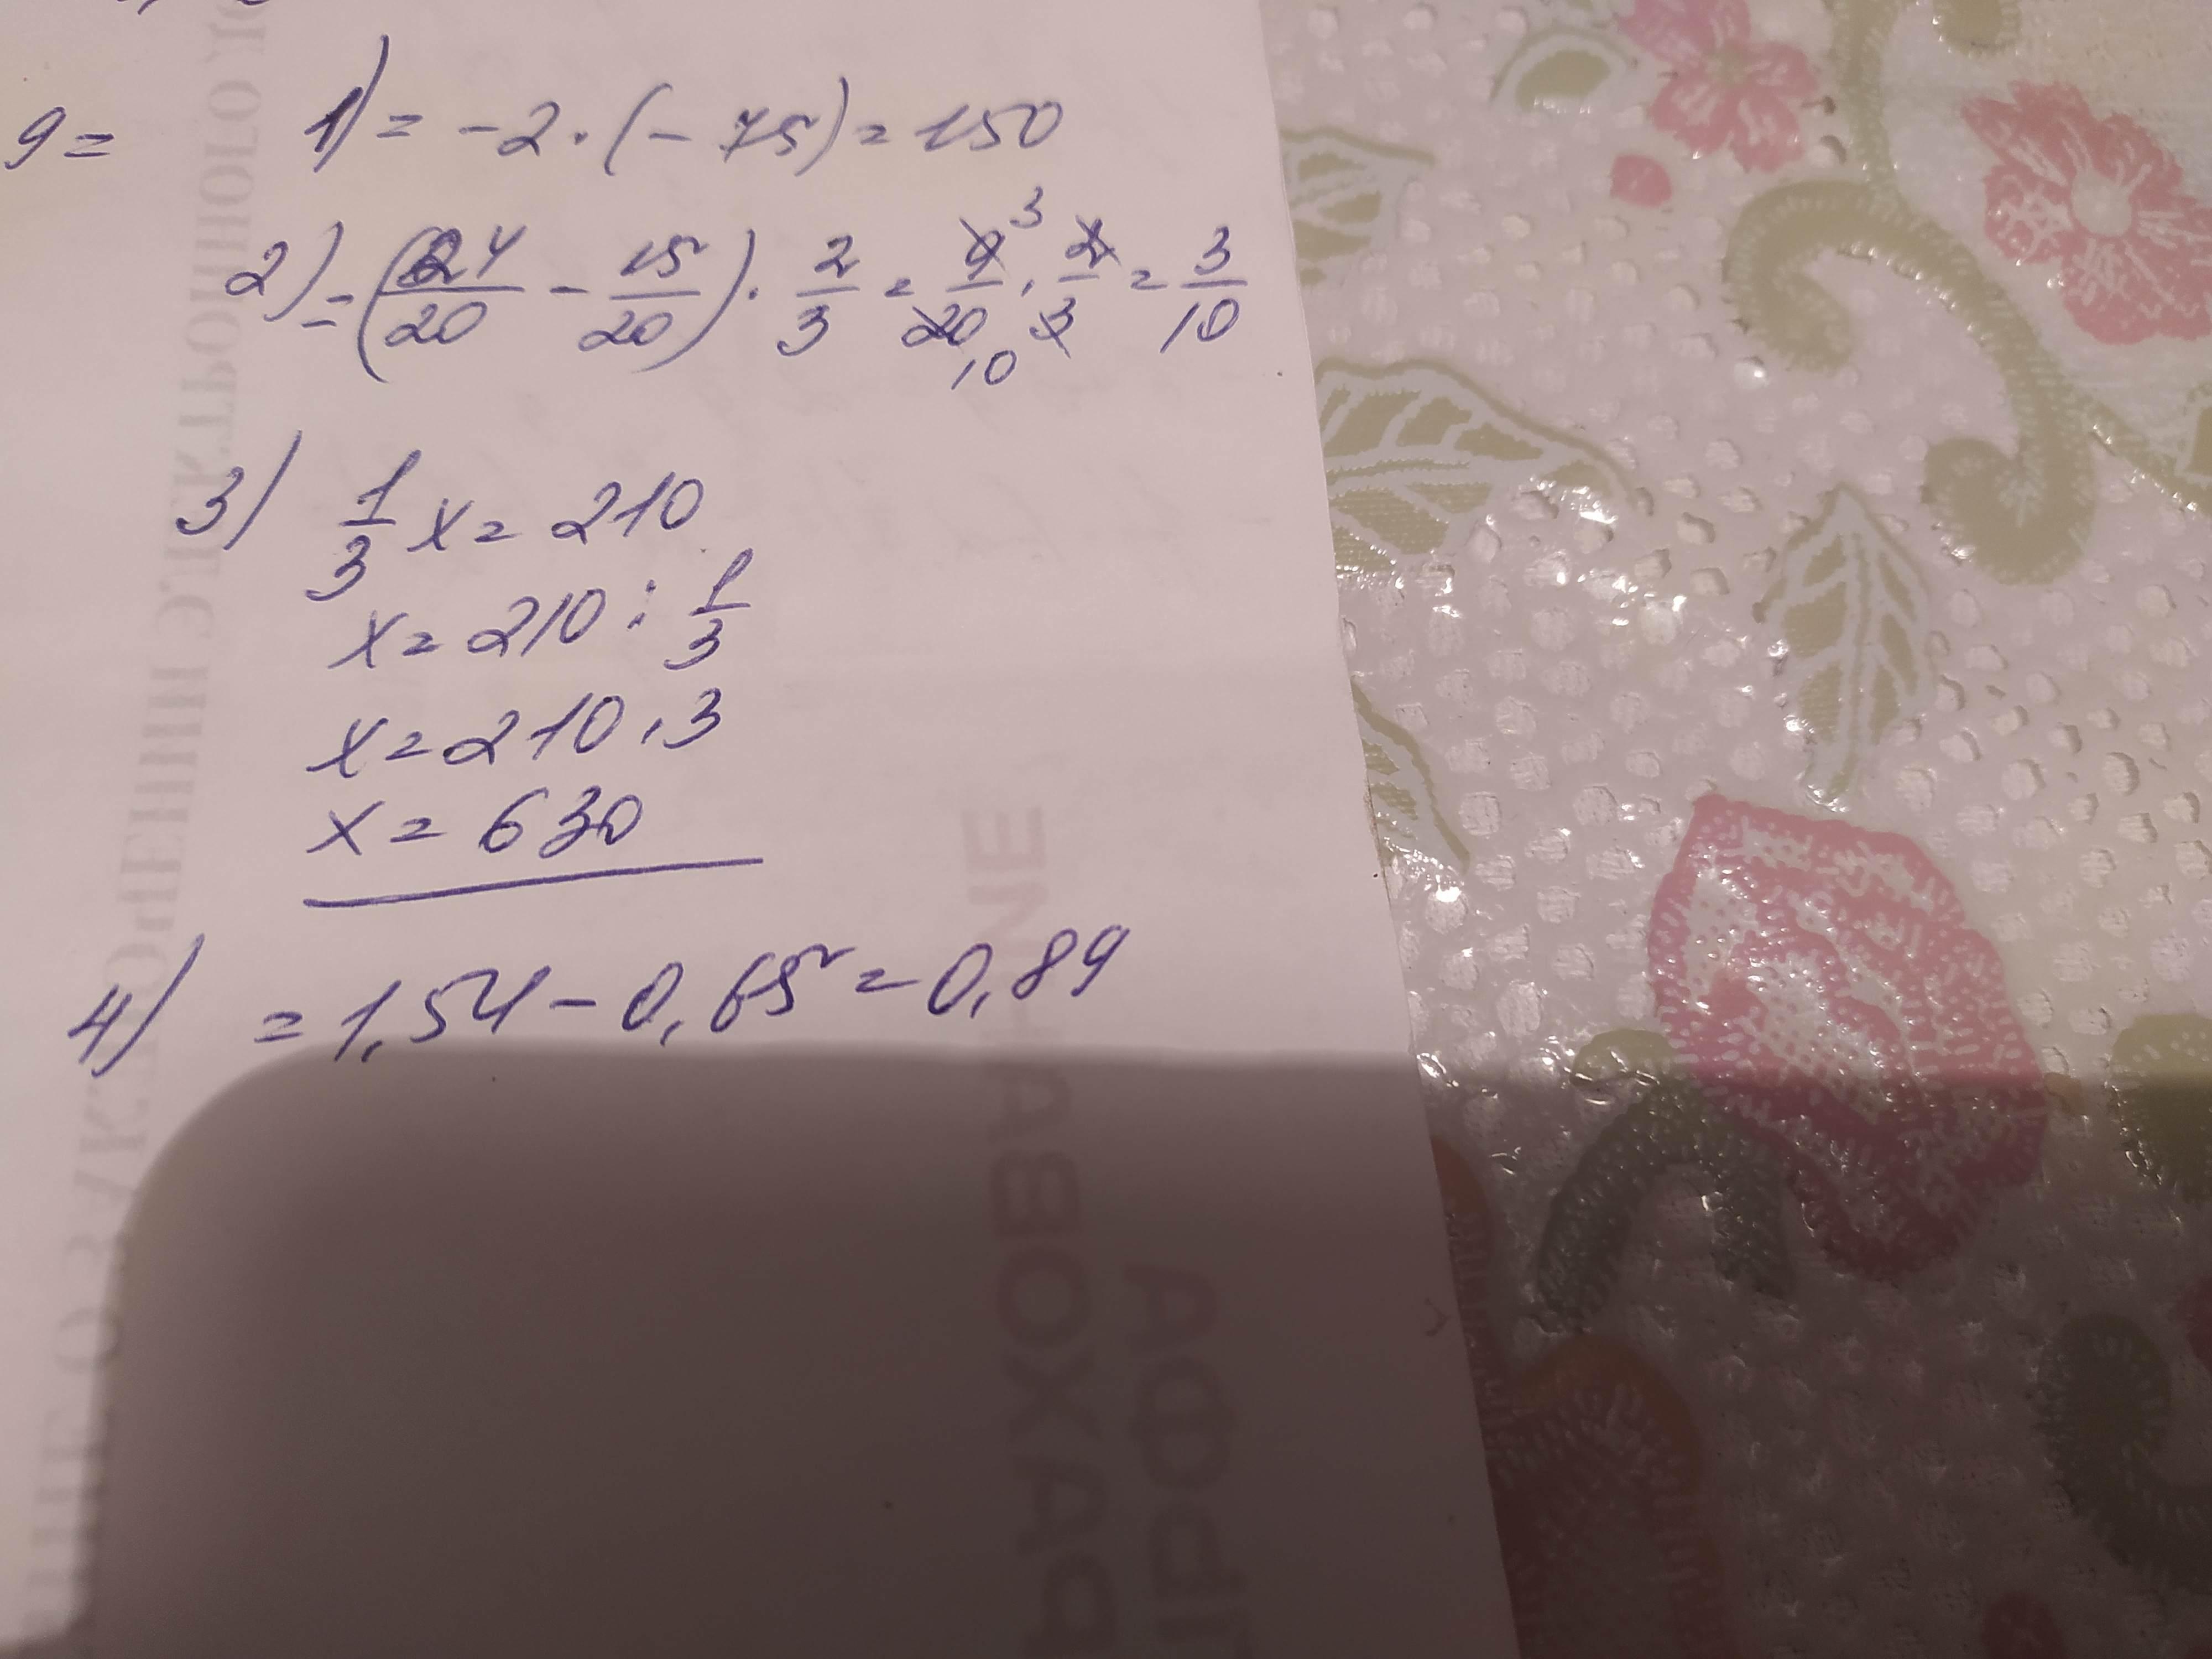 9=
1) = -2 · (-75) = 150
2) = (24/20 - 15/20) · 2/3 = 9/20 · 2/3 = 3/10
3
10
3) 1/3 x = 210
x = 210 : 1/3
x = 210 · 3
x = 630
4) = 1,54 - 0,65 = 0,89